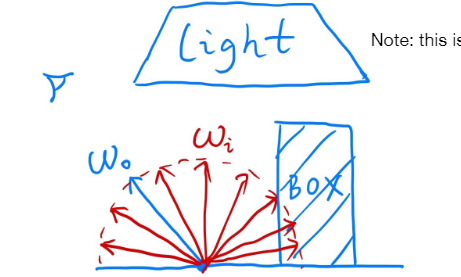 Light
Note: this is
ωi
ωo
BOX